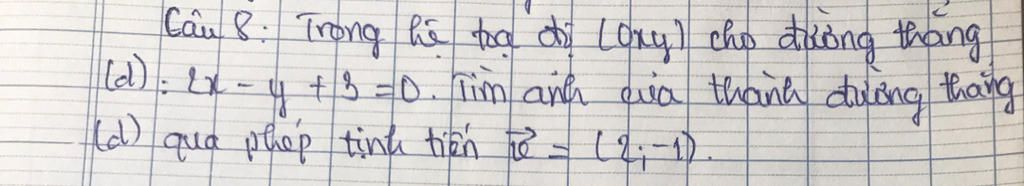 Câu 8: Trong hệ toạ độ (Oxy) cho đường thẳng
(d): 2x - y + 3 = 0. Tìm ảnh của thành đường thẳng
(d) qua phép tịnh tiến v⃗ = (2;-1).